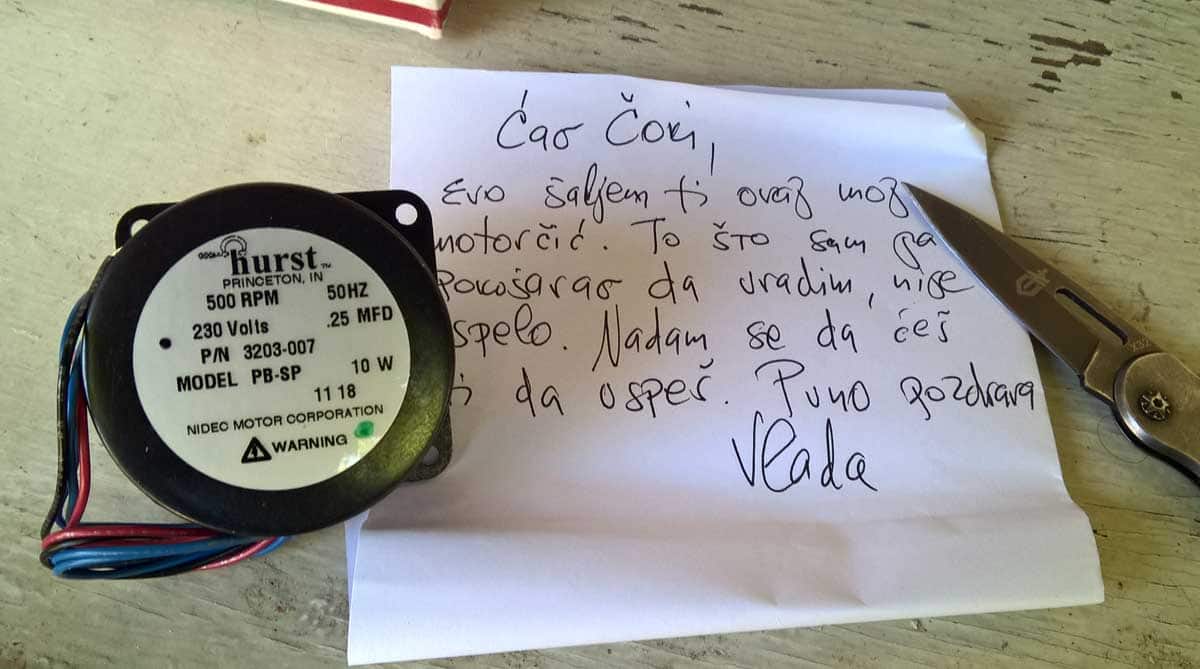 hurst™
PRINCETON, IN
500 RPM 50HZ
230 Volts .25 MFD
P/N 3203-007
MODEL PB-SP 10 W
11 18
NIDEC MOTOR CORPORATION
WARNING
Ćao Čoki,
Evo šaljem ti ovaj moj
motorčić. To što sam ga
pokušavao da uradim, nije
spelo. Nadam se da ćeš
ti da uspeš. Puno pozdrava
Vlada